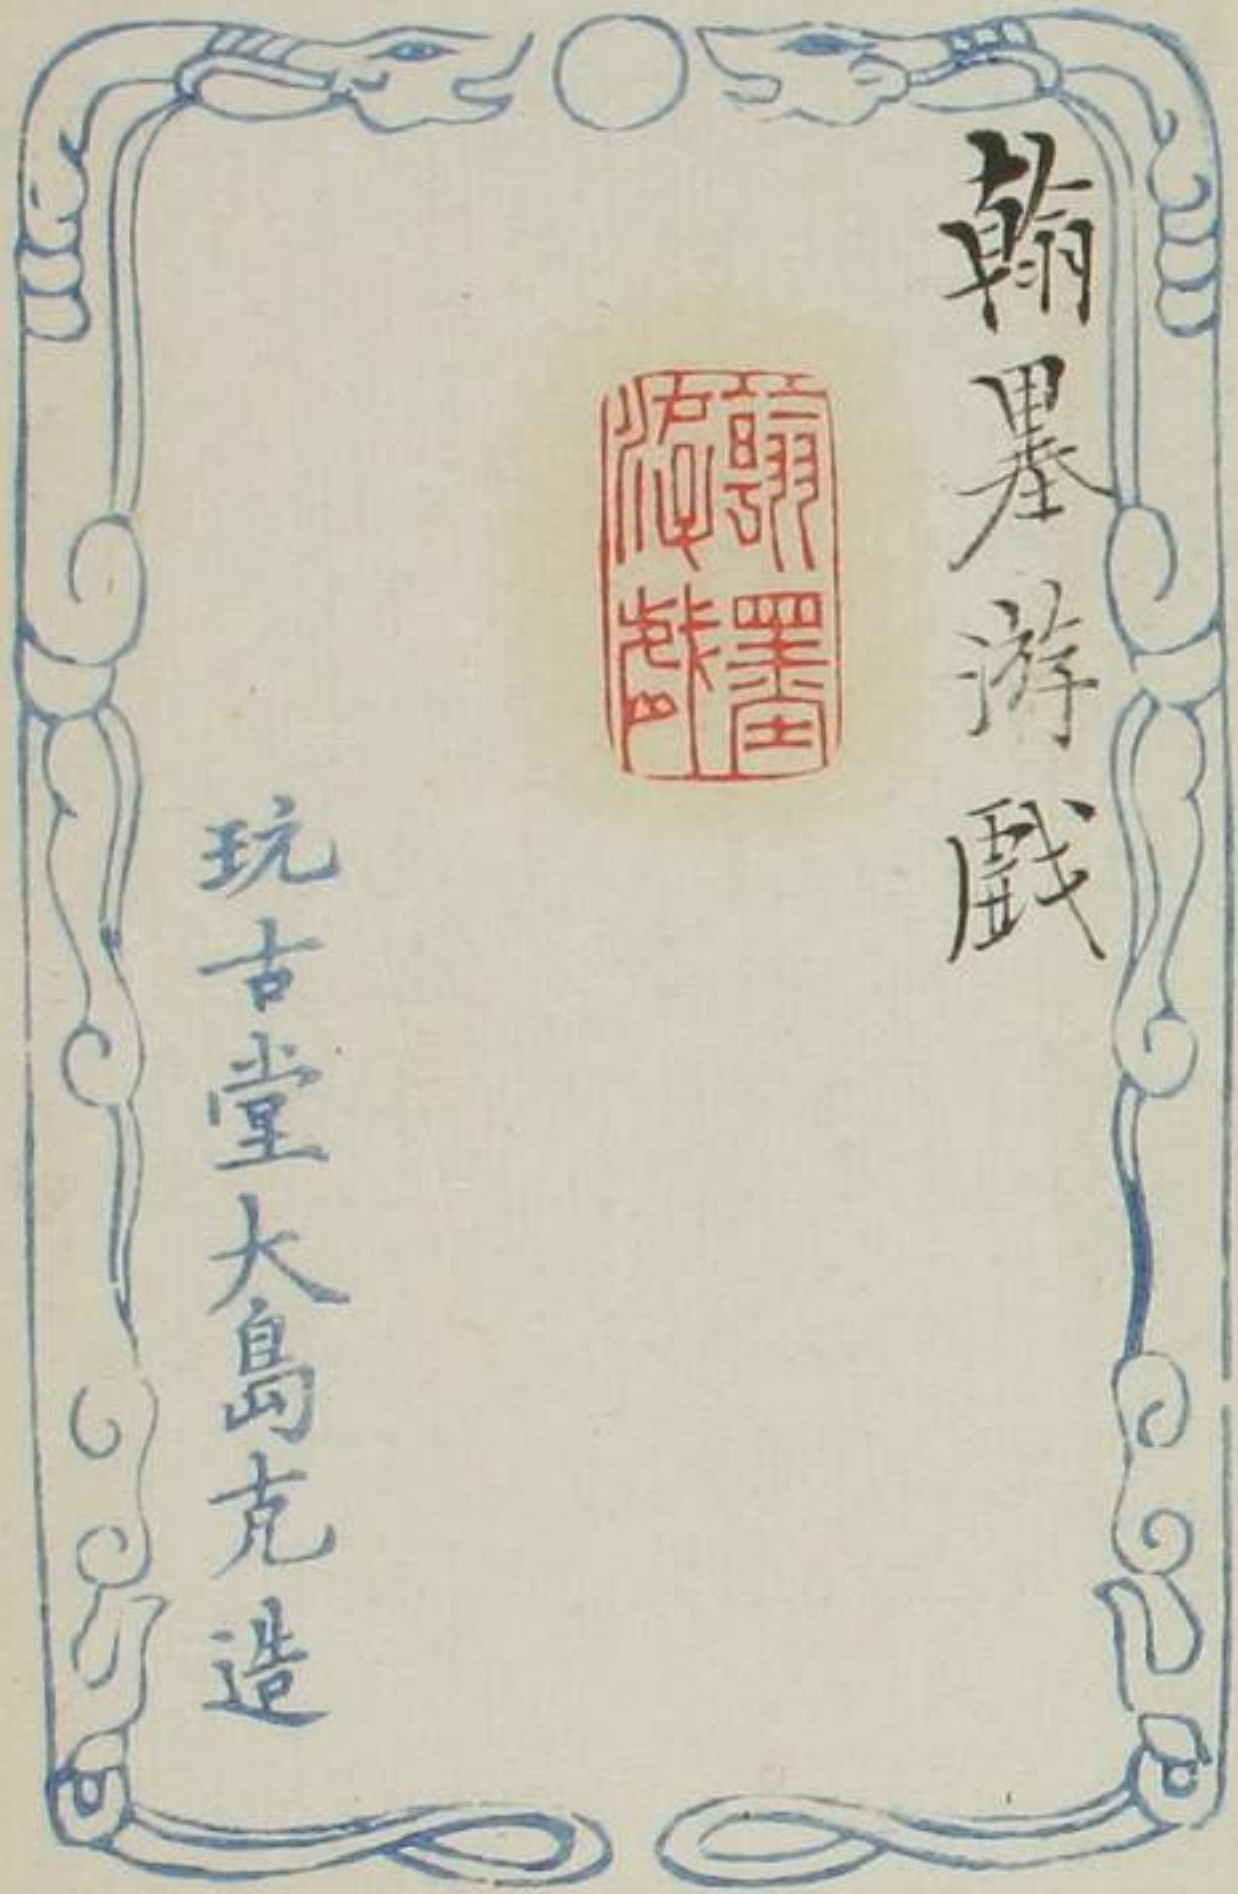 翰墨游戲
翰墨游戲
玩古堂大島克造